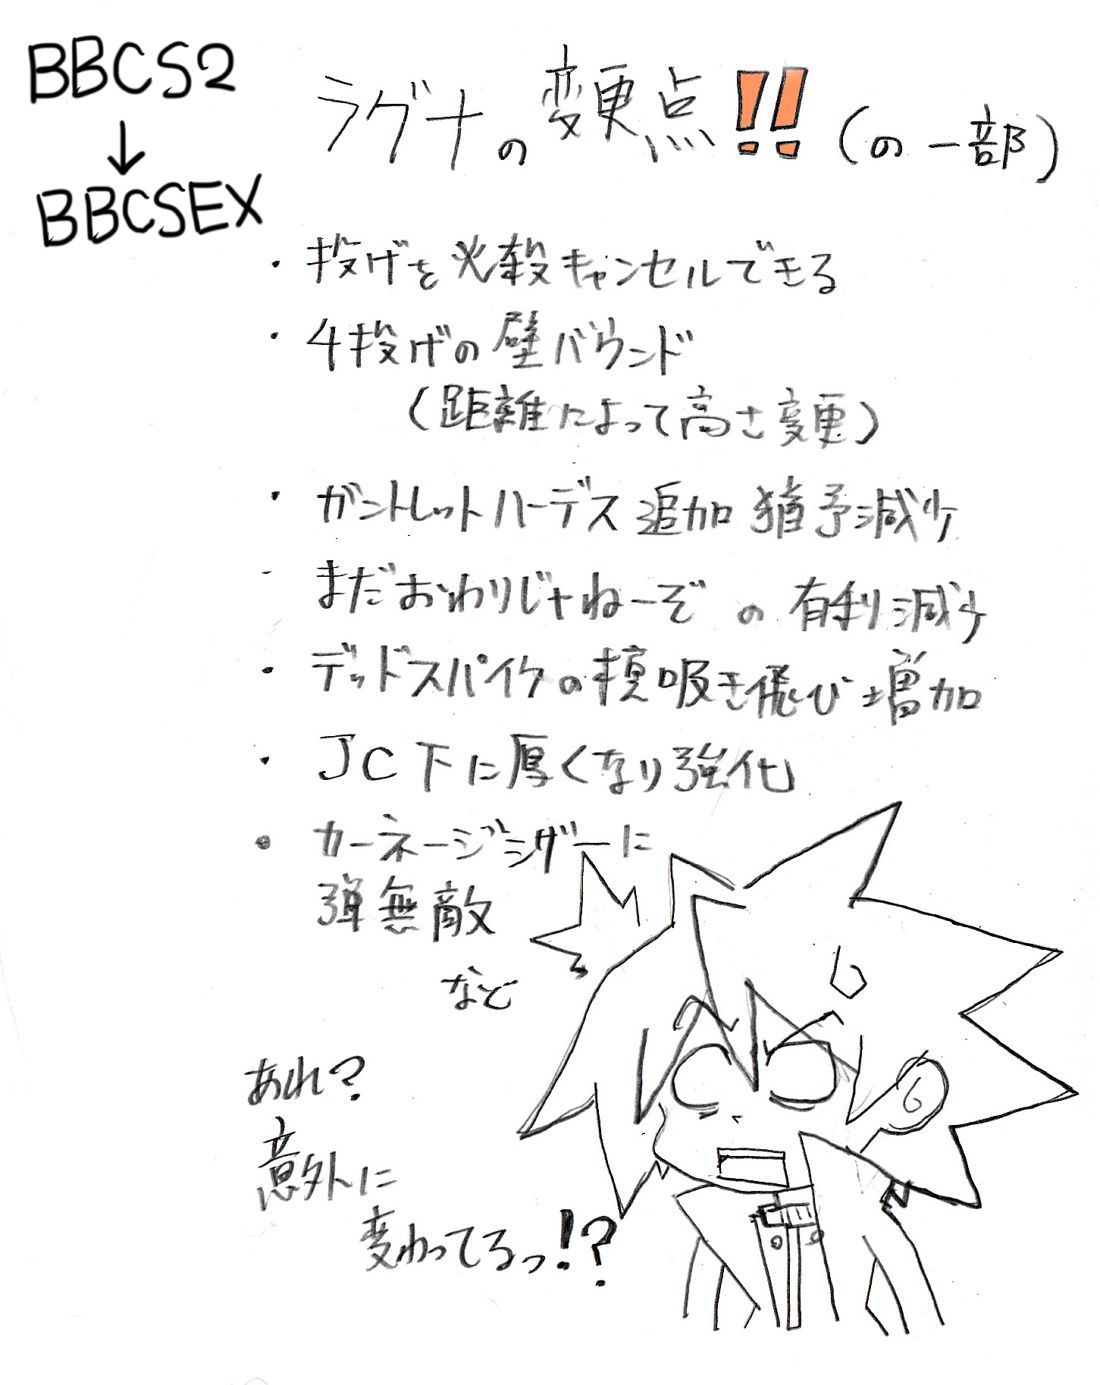 BBCS2
↓
BBCSEX
ラグナの変更点!!(の一部)
・投げを必殺キャンセルできる
・4投げの壁バウンド
(距離によって高さ変更)
・ガントレットハーデス追加猶予減少
・まだおわりじゃねーぞの有利減少
・デッドスパイクの横吹き飛び増加
・JC下に厚くなり強化
・カーネージシザーに
弾無敵
など
あれ?
意外に
変わってるっ!?